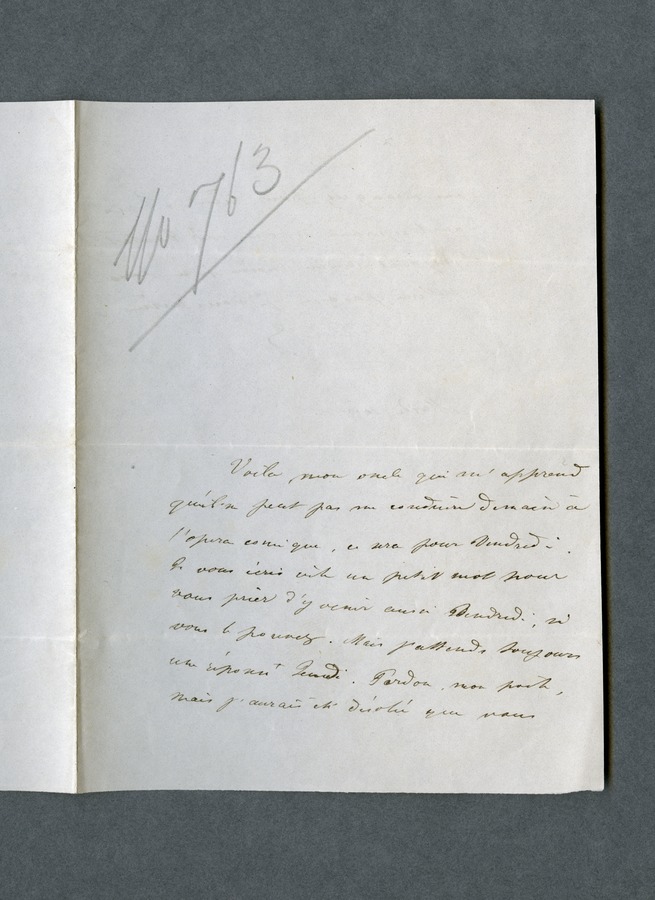 No 763
Voila, mon oncle qui m'apprend
qu'il ne peut pas me conduire demain à
l'opera comique, ce sera pour Vendredi.
Je vous écris vite un petit mot pour
vous prier d'y venir aussi Vendredi, si
vous le pouvez. Mais j'attends toujours
une réponse Jeudi. Pardon, mon poëte,
mais j'aurais été désolée que vous